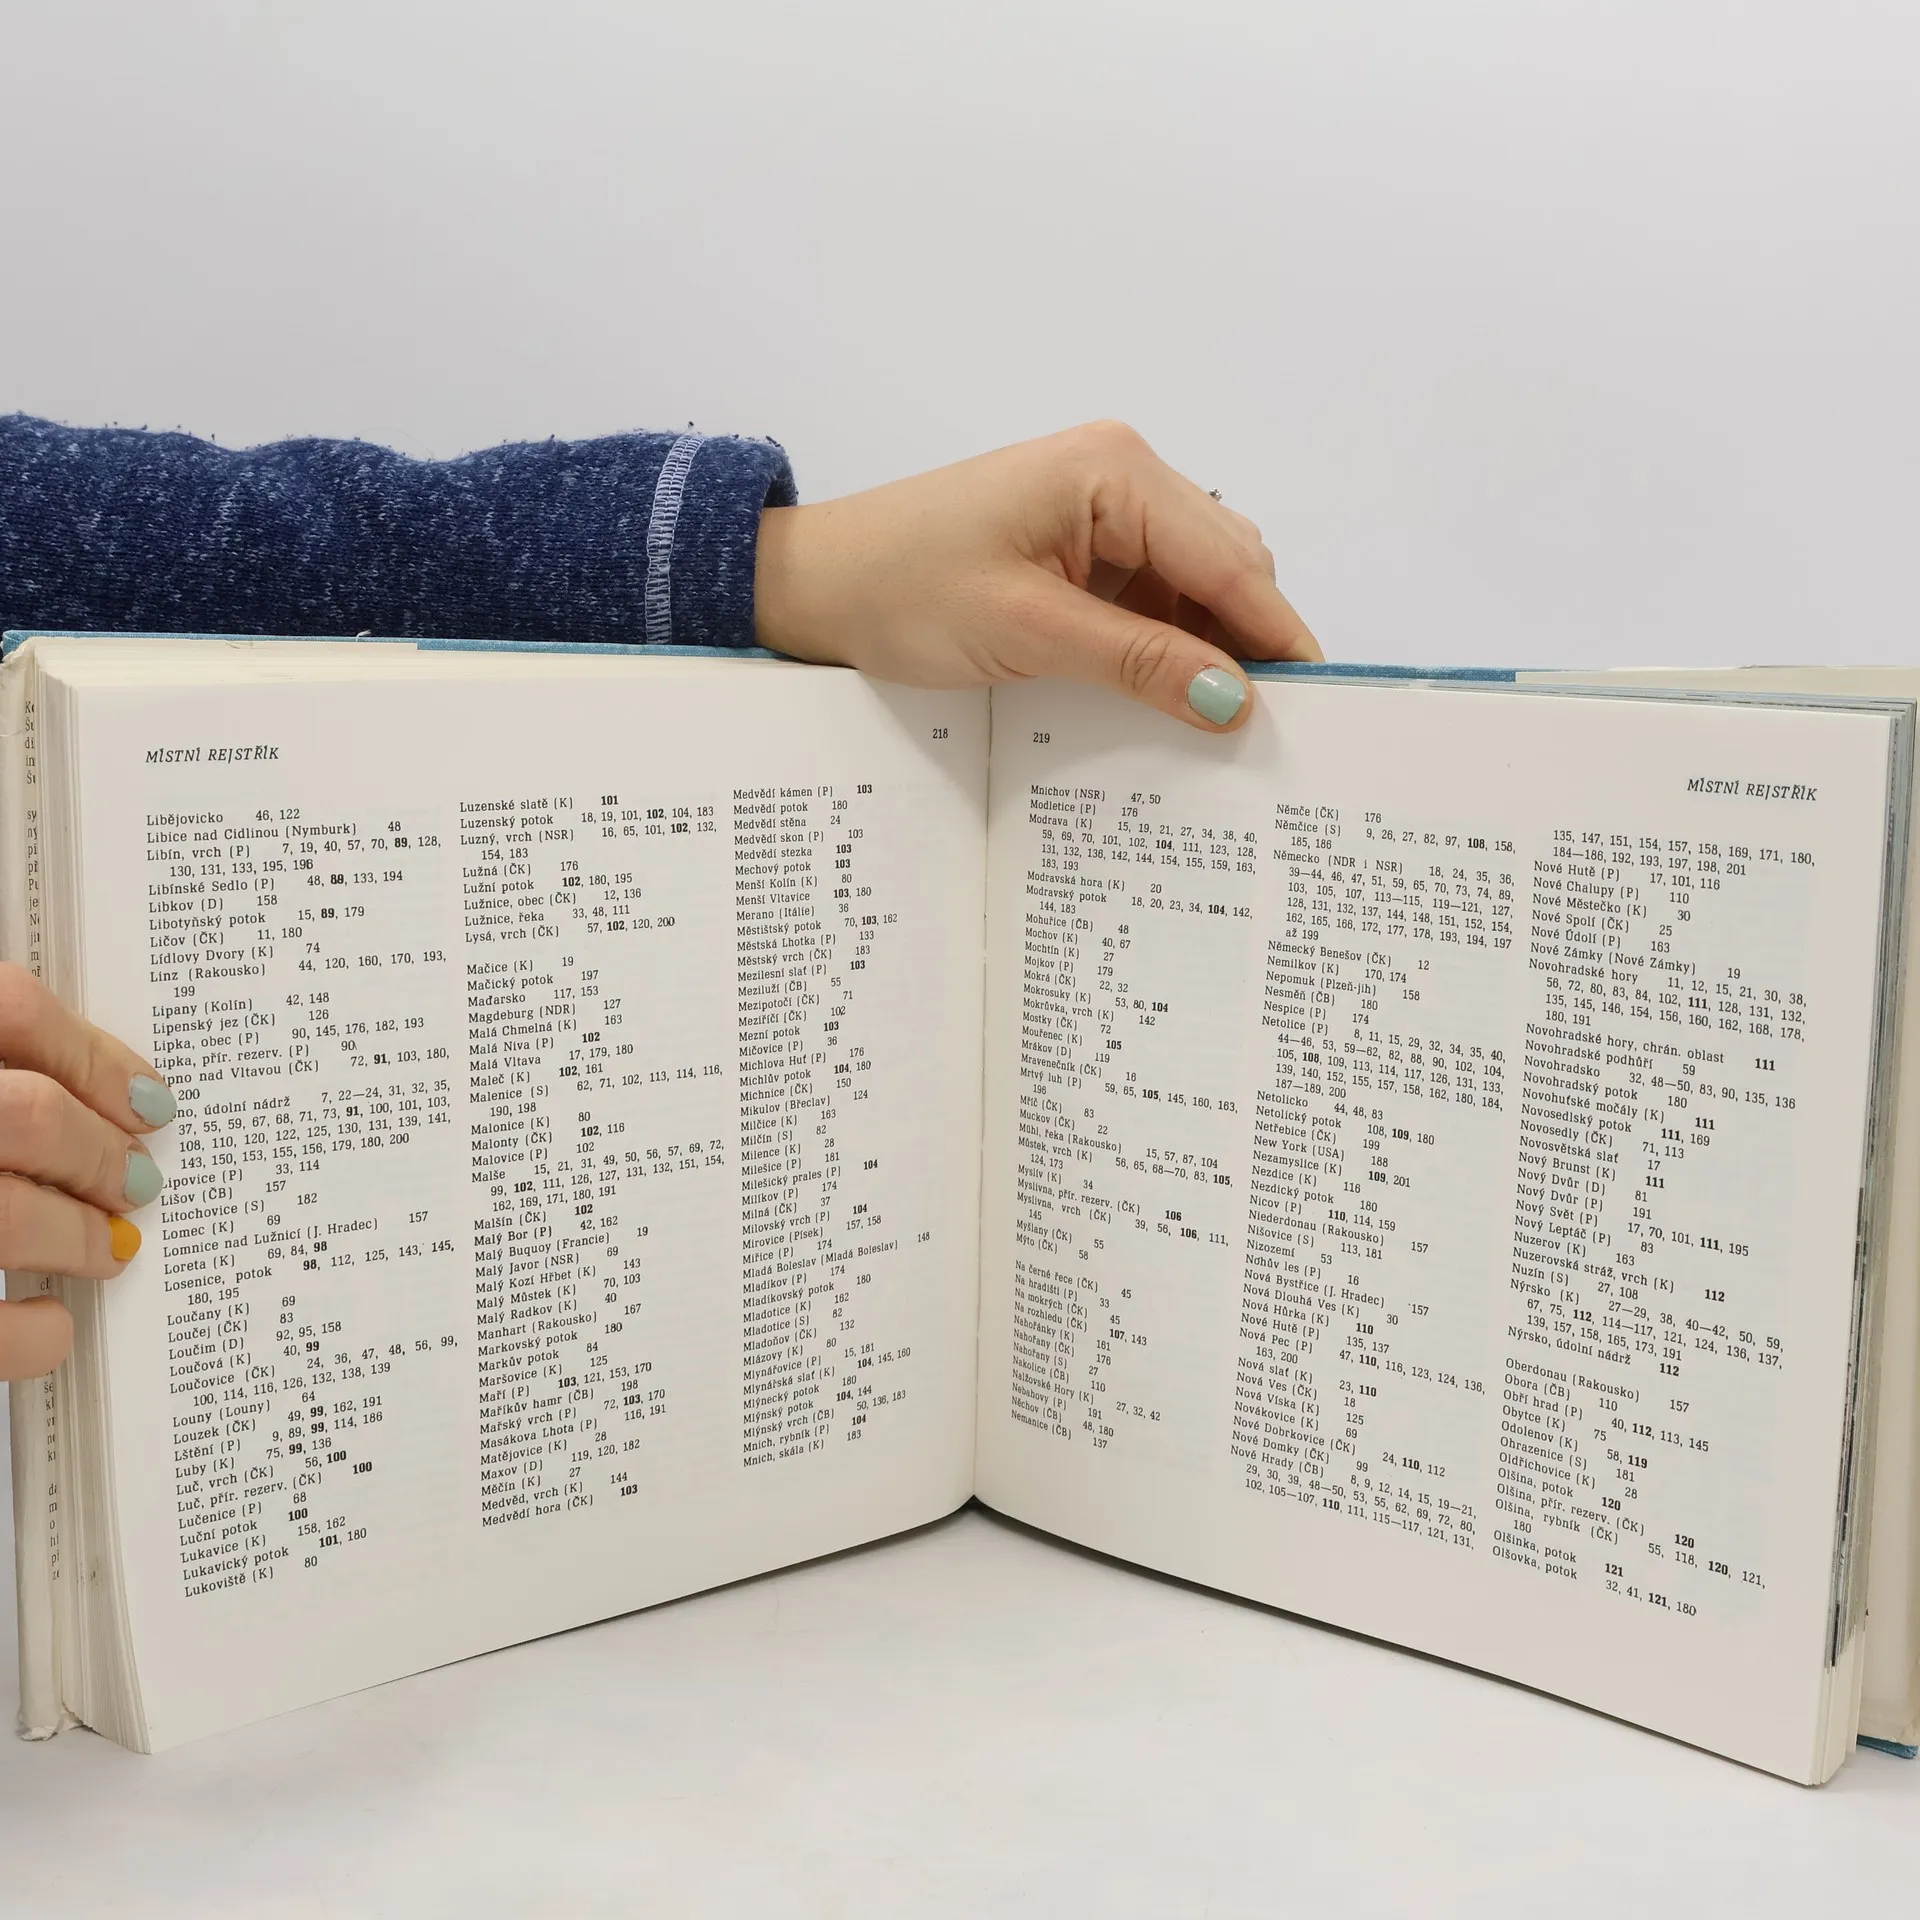 218
MÍSTNÍ REJSTŘÍK
Libějovicko 46, 122
Libice nad Cidlinou (Nymburk) 48
Libín, vrch (P) 7, 19, 40, 57, 70, 89, 128,
130, 131, 133, 195, 196
Libínské Sedlo (P) 48, 89, 133, 194
Libkov (D) 158
Libotyňský potok 15, 89, 179
Ličov (ČK) 11, 180
Lídlovy Dvory (K) 74
Linz (Rakousko) 44, 120, 160, 170, 193,
199
Lipany (Kolín) 42, 148
Lipenský jez (ČK) 126
Lipka, obec (P) 90, 145, 176, 182, 193
Lipka, přír. rezerv. (P) 90
ipno nad Vltavou (ČK) 72, 91, 103, 180,
200
no, údolní nádrž 7, 22—24, 31, 32, 35,
37, 55, 59, 67, 68, 71, 73, 91, 100, 101, 103,
108, 110, 120, 122, 125, 130, 131, 139, 141,
143, 150, 153, 155, 156, 179, 180, 200
Lipovice (P) 33, 114
Lišov (ČB) 157
Litochovice (S) 182
Lomec (K) 69
Lomnice nad Lužnicí (J. Hradec) 157
Loreta (K) 69, 84, 98
Losenice, potok 98, 112, 125, 143, 145,
180, 195
Loučany (K) 69
Loučej (ČK) 83
Loučim (D) 92, 95, 158
Loučová (K) 40, 99
Loučovice (ČK) 24, 36, 47, 48, 56, 99,
100, 114, 116, 126, 132, 138, 139
Louny (Louny) 64
Louzek (ČK) 49, 99, 162, 191
Lštění (P) 9, 89, 99, 114, 186
Luby (K) 75, 99, 136
Luč, vrch (ČK) 56, 100
Luč, přír. rezerv. (ČK) 100
Lučenice (P) 68
Luční potok 100
Lukavice (K) 158, 162
Lukavický potok 101, 180
Lukoviště (K) 80
Luzenské slatě (K) 101
Luzenský potok 18, 19, 101, 102, 104, 183
Luzný, vrch (NSR) 16, 65, 101, 102, 132,
154, 183
Lužná (ČK) 176
Lužní potok 102, 180, 195
Lužnice, obec (ČK) 12, 136
Lužnice, řeka 33, 48, 111
Lysá, vrch (ČK) 57, 102, 120, 200
Mačice (K) 19
Mačický potok 197
Maďarsko 117, 153
Magdeburg (NDR) 127
Malá Chmelná (K) 163
Malá Niva (P) 102
Malá Vltava 17, 179, 180
Maleč (K) 102, 161
Malenice (S) 62, 71, 102, 113, 114, 116,
190, 198
Malonice (K) 80
Malonty (ČK) 102, 116
Malovice (P) 102
Malše 15, 21, 31, 49, 50, 56, 57, 69, 72,
99, 102, 111, 126, 127, 131, 132, 151, 154,
162, 169, 171, 180, 191
Malšín (ČK) 102
Malý Bor (P) 42, 162
Malý Buquoy (Francie) 19
Malý Javor (NSR) 69
Malý Kozí Hřbet (K) 143
Malý Můstek (K) 70, 103
Malý Radkov (K) 40
Manhart (Rakousko) 167
Markovský potok 180
Markův potok 84
Maršovice (K) 125
Maří (P) 103, 121, 153, 170
Maříkův hamr (ČB) 198
Mařský vrch (P) 72, 103, 170
Masákova Lhota (P) 116, 191
Matějovice (K) 28
Maxov (D) 119, 120, 182
Měčín (K) 27
Medvěd, vrch (K) 144
Medvědí hora (ČK) 103
Medvědí kámen (P) 103
Medvědí potok 180
Medvědí stěna 24
Medvědí skon (P) 103
Medvědí stezka 103
Mechový potok 103
Menší Kolín (K) 80
Menší Vltavice 103, 180
Merano (Itálie) 36
Městištský potok 70, 103, 162
Městská Lhotka (P) 133
Městský vrch (ČK) 183
Mezilesní slať (P) 103
Meziluží (ČB) 55
Mezipotočí (ČK) 71
Meziříčí (ČK) 102
Mezní potok 103
Mičovice (P) 36
Michlova Huť (P) 176
Michlův potok 104, 180
Michnice (ČK) 150
Mikulov (Břeclav) 124
Milčice (K) 163
Milčín (S) 82
Milence (K) 28
Milešice (P) 181
Milešický prales (P) 104
Milíkov (P) 174
Milná (ČK) 37
Milovský vrch (P) 104
Mirovice (Písek) 157, 158
Miřice (P) 174
Mladá Boleslav (Mladá Boleslav) 148
Mladíkov (P) 174
Mladíkovský potok 180
Mladotice (K) 162
Mladotice (S) 82
Mladoňov (ČK) 132
Mlázovy (K) 80
Mlynářovice (P) 15, 181
Mlynářská slať (K) 104, 145, 160
Mlýnecký potok 180
Mlýnský potok 104, 144
Mlýnský vrch (ČB) 50, 136, 183
Mnich, rybník (P) 104
Mnich, skála (K) 183
219
MÍSTNÍ REJSTŘÍK
Mnichov (NSR) 47, 50
Modletice (P) 176
Modrava (K) 15, 19, 21, 27, 34, 38, 40,
59, 69, 70, 101, 102, 104, 111, 123, 128,
131, 132, 136, 142, 144, 154, 155, 159, 163,
183, 193
Modravská hora (K) 20
Modravský potok 18, 20, 23, 34, 104, 142,
144, 183
Mohuřice (ČB) 48
Mochov (K) 40, 67
Mochtín (K) 27
Mojkov (P) 179
Mokrá (ČK) 22, 32
Mokrosuky (K) 53, 80, 104
Mokrůvka, vrch (K) 142
Mostky (ČK) 72
Mouřenec (K) 105
Mrákov (D) 119
Mravenečník (ČK) 16
Mrtvý luh (P) 59, 65, 105, 145, 160, 163,
196
Mříč (ČK) 83
Muckov (ČK) 22
Mühl, řeka (Rakousko) 15, 57, 87, 104
Můstek, vrch (K) 56, 65, 68—70, 83, 105,
124, 173
Mysliv (K) 34
Myslivna, přír. rezerv. (ČK) 106
Myslivna, vrch (ČK) 39, 56, 106, 111,
145
Myšlany (ČK) 55
Mýto (ČK) 58
Na černé řece (ČK) 45
Na hradišti (P) 33
Na mokrých (ČK) 45
Na rozhledu (ČK) 107, 143
Nahořánky (K) 161
Nahořany (ČK) 176
Nahořany (S) 27
Nakolice (ČB) 110
Nalžovské Hory (K) 27, 32, 42
Nebahovy (P) 191
Něchov (ČB) 48, 180
Nemanice (ČB) 137
Němče (ČK) 176
Němčice (S) 9, 26, 27, 82, 97, 108, 158,
185, 186
Německo (NDR i NSR) 18, 24, 35, 36,
39—44, 46, 47, 51, 59, 65, 70, 73, 74, 89,
103, 105, 107, 113—115, 119—121, 127,
128, 131, 132, 137, 144, 148, 151, 152, 154,
162, 165, 166, 172, 177, 178, 193, 194, 197
až 199
Německý Benešov (ČK) 12
Nemilkov (K) 170, 174
Nepomuk (Plzeň-jih) 158
Nesměň (ČB) 180
Nespice (P) 174
Netolice (P) 8, 11, 15, 29, 32, 34, 35, 40,
44—46, 53, 59—62, 82, 88, 90, 102, 104,
105, 108, 109, 113, 114, 117, 126, 131, 133,
139, 140, 152, 155, 157, 158, 162, 180, 184,
187—189, 200
Netolicko 44, 48, 83
Netolický potok 108, 109, 180
Netřebice (ČK) 199
New York (USA) 188
Nezamyslice (K) 109, 201
Nezdice (K) 116
Nezdický potok 180
Nicov (P) 110, 114, 159
Niederdonau (Rakousko) 157
Nišovice (S) 113, 181
Nizozemí 53
Nohův les (P) 16
Nová Bystřice (J. Hradec) 157
Nová Dlouhá Ves (K) 30
Nová Hůrka (K) 110
Nové Hutě (P) 135, 137
Nová Pec (P) 47, 110, 116, 123, 124, 136,
163, 200
Nová slať (K) 23, 110
Nová Ves (ČK) 18
Nová Víska (K) 125
Novákovice (K) 69
Nové Dobrkovice (ČK) 24, 110, 112
Nové Domky (ČK) 99
Nové Hrady (ČB) 8, 9, 12, 14, 15, 19—21,
29, 30, 39, 48—50, 53, 55, 62, 69, 72, 80,
102, 105—107, 110, 111, 115—117, 121, 131,
135, 147, 151, 154, 157, 158, 169, 171, 180,
184—186, 192, 193, 197, 198, 201
Nové Hutě (P) 17, 101, 116
Nové Chalupy (P) 110
Nové Městečko (K) 30
Nové Spolí (ČK) 25
Nové Údolí (P) 163
Nové Zámky (Nové Zámky) 19
Novohradské hory 11, 12, 15, 21, 30, 38,
56, 72, 80, 83, 84, 102, 111, 128, 131, 132,
135, 145, 146, 154, 156, 160, 162, 168, 178,
180, 191
Novohradské hory, chrán. oblast 111
Novohradské podhůří 59
Novohradsko 32, 48—50, 83, 90, 135, 136
Novohradský potok 180
Novohuťské močály (K) 111
Novosedlský potok 111, 169
Novosedly (ČK) 71, 113
Novosvětská slať 17
Nový Brunst (K) 111
Nový Dvůr (D) 81
Nový Dvůr (P) 191
Nový Svět (P) 17, 70, 101, 111, 195
Nový Leptáč (P) 83
Nuzerov (K) 163
Nuzerovská stráž, vrch (K) 112
Nuzín (S) 27, 108
Nýrsko (K) 27—29, 38, 40—42, 50, 59,
67, 75, 112, 114—117, 121, 124, 136, 137,
139, 157, 158, 165, 173, 191
Nýrsko, údolní nádrž 112
Oberdonau (Rakousko) 157
Obora (ČB) 110
Obří hrad (P) 40, 112, 113, 145
Obytce (K) 75
Odolenov (K) 58, 119
Ohrazenice (S) 181
Oldřichovice (K) 28
Olšina, potok 120
Olšina, přír. rezerv. (ČK) 120
Olšina, rybník (ČK) 55, 118, 120, 121,
180
Olšinka, potok 121
Olšovka, potok 32, 41, 121, 180